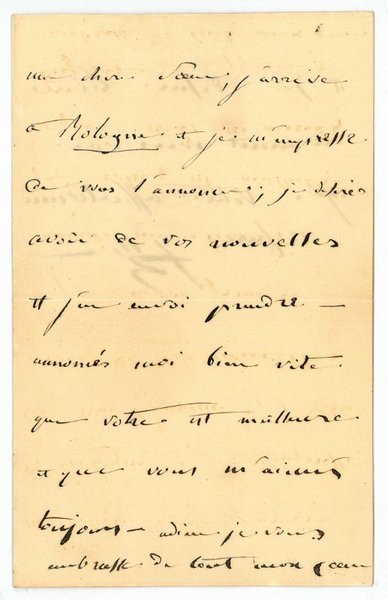 ma chere Sœur j'arrive
a Bologne et je m'empresse
de vous l'annoncer; je desire
avoir de vos nouvelles
et j'en envoi prendre —
annonsés moi bien vite
que votre est meilleure
et que vous m'aimés
toujours — adieu je vous
embrasse de tout mon cœur